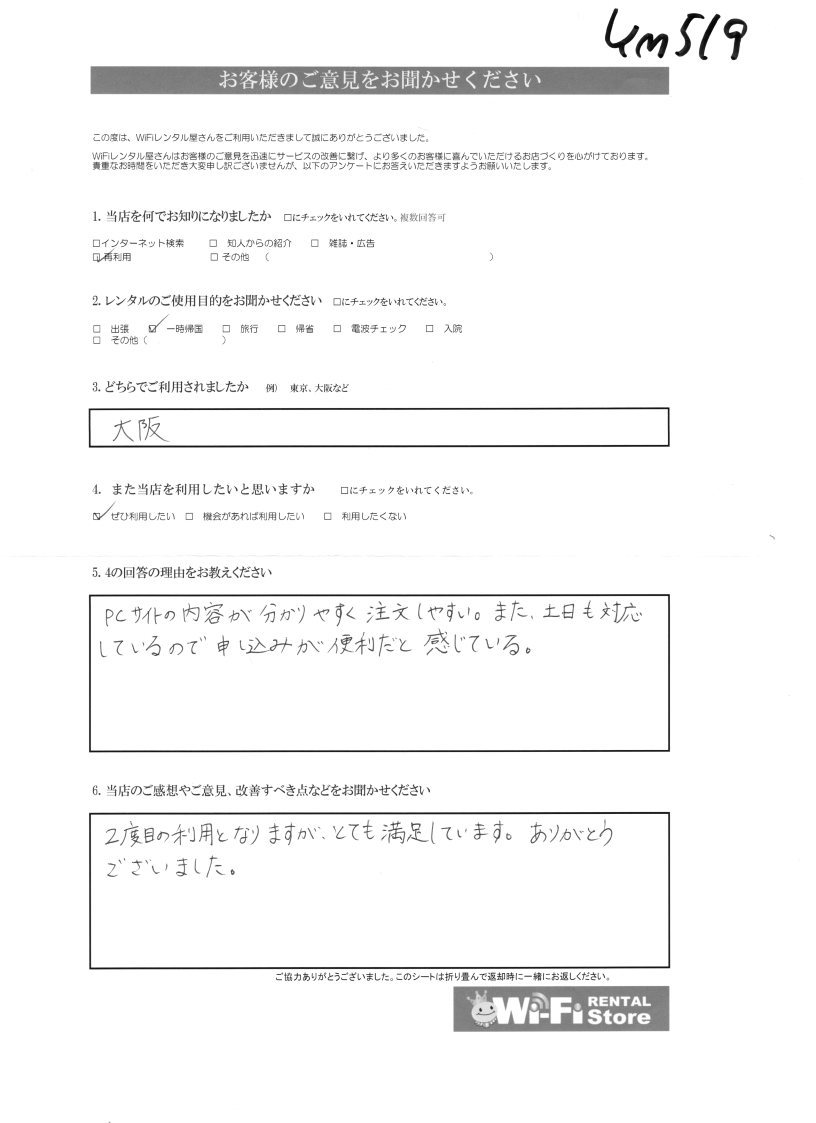 Um519
お客様のご意見をお聞かせください
この度は、WiFiレンタル屋さんをご利用いただきまして誠にありがとうございました。
WiFiレンタル屋さんはお客様のご意見を迅速にサービスの改善に繋げ、より多くのお客様に喜んでいただけるお店づくりを心がけております。
貴重なお時間をいただき大変申し訳ございませんが、以下のアンケートにお答えいただきますようお願いいたします。
1. 当店を何でお知りになりましたか □にチェックをいれてください。複数回答可
□インターネット検索 □ 知人からの紹介 □ 雑誌・広告
☑再利用 □ その他 ( )
2. レンタルのご使用目的をお聞かせください □にチェックをいれてください。
□ 出張 ☑ 一時帰国 □ 旅行 □ 帰省 □ 電波チェック □ 入院
□ その他 ( )
3. どちらでご利用されましたか 例) 東京、大阪など
大阪
4. また当店を利用したいと思いますか □にチェックをいれてください。
☑ ぜひ利用したい □ 機会があれば利用したい □ 利用したくない
5. 4の回答の理由をお教えください
PCサイトの内容が分かりやすく注文しやすい。また、土日も対応
しているので申し込みが便利だと感じている。
6. 当店のご感想やご意見、改善すべき点などをお聞かせください
2度目の利用となりますが、とても満足しています。ありがとう
ございました。
ご協力ありがとうございました。このシートは折り畳んで返却時に一緒にお返しください。
Wi-Fi RENTAL
Store